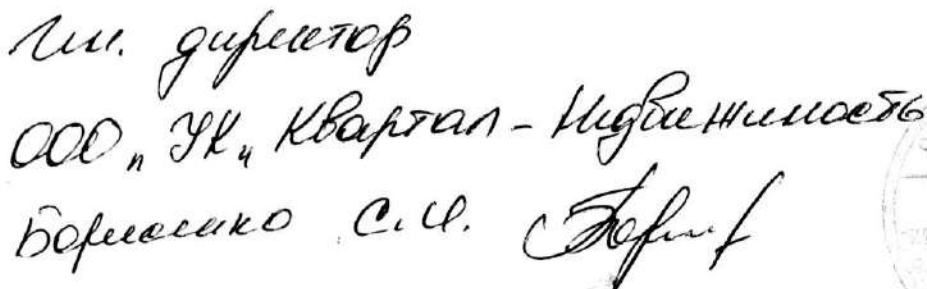 Ген. директор
ООО "УК" Квартал - Недвижимость
С.И.